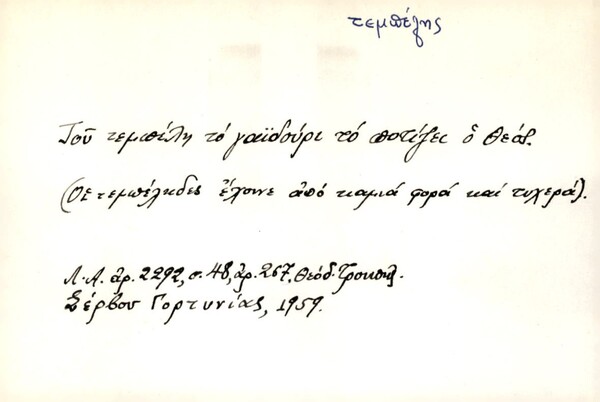 τεμπέλης
Τοῦ τεμπέλη τό γαϊδούρι τό ποτίζει ὁ Θεός.
(Οἱ τεμπέληδες ἔχουνε ἀπό καμιά φορά καί τυχερά).
Λ.Α. ἀρ. 2292, σ. 48, ἀρ. 267, Θεόδ.
Σέρβου Γορτυνίας, 1959.